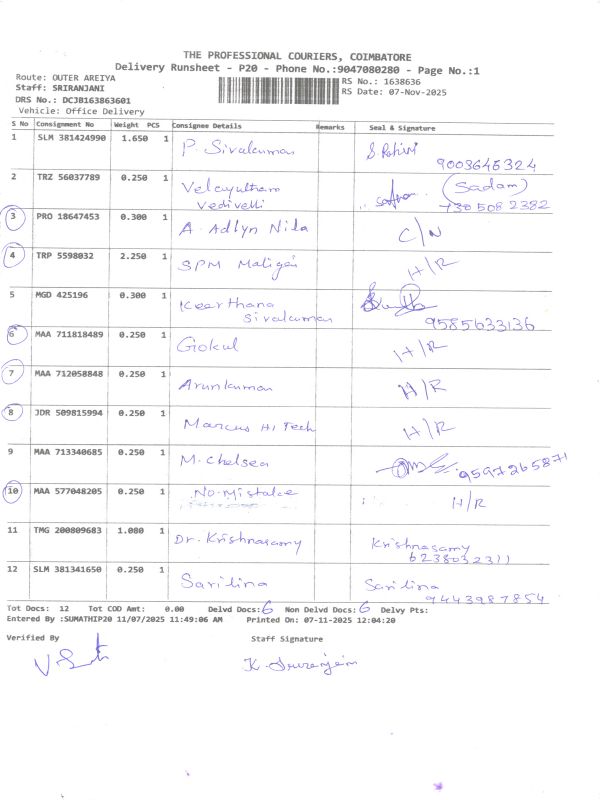 THE PROFESSIONAL COURIERS, COIMBATORE
Delivery Runsheet - P20 - Phone No.:9047080280 - Page No.:1
Route: OUTER AREIYA
RS No.: 1638636
Staff: SRIRANJANI
RS Date: 07-Nov-2025
DRS No.: DCJB163863601
Vehicle: Office Delivery
S No Consignment No Weight PCS Consignee Details Remarks Seal & Signature
1 SLM 381424990 1.650 1 P. Sivakumar
9003646324
2 TRZ 56037789 0.250 1 Velayutham (Sadam)
Vedivelli 7305082382
3 PRO 18647453 0.300 1 A. Adlyn Nila C/N
4 TRP 5598032 2.250 1 SPM Maligai H/R
5 MGD 425196 0.300 1 Keerthana
Sivakumar 9585633136
6 MAA 711818489 0.250 1 Gokul H/R
7 MAA 712058848 0.250 1 Arunkumar H/R
8 JDR 509815994 0.250 1 Marcus Hi Tech H/R
9 MAA 713340685 0.250 1 M. Chelsea 9597265871
10 MAA 577048205 0.250 1 No-Mistake H/R
11 TMG 200809683 1.080 1 Dr. Krishnasamy Krishnasamy
6238032311
12 SLM 381341650 0.250 1 Sarilina Sarilina
9443987854
Tot Docs: 12 Tot COD Amt: 0.00 Delvd Docs: 6 Non Delvd Docs: 6 Delvy Pts:
Entered By :SUMATHIP20 11/07/2025 11:49:06 AM Printed On: 07-11-2025 12:04:20
Verified By Staff Signature